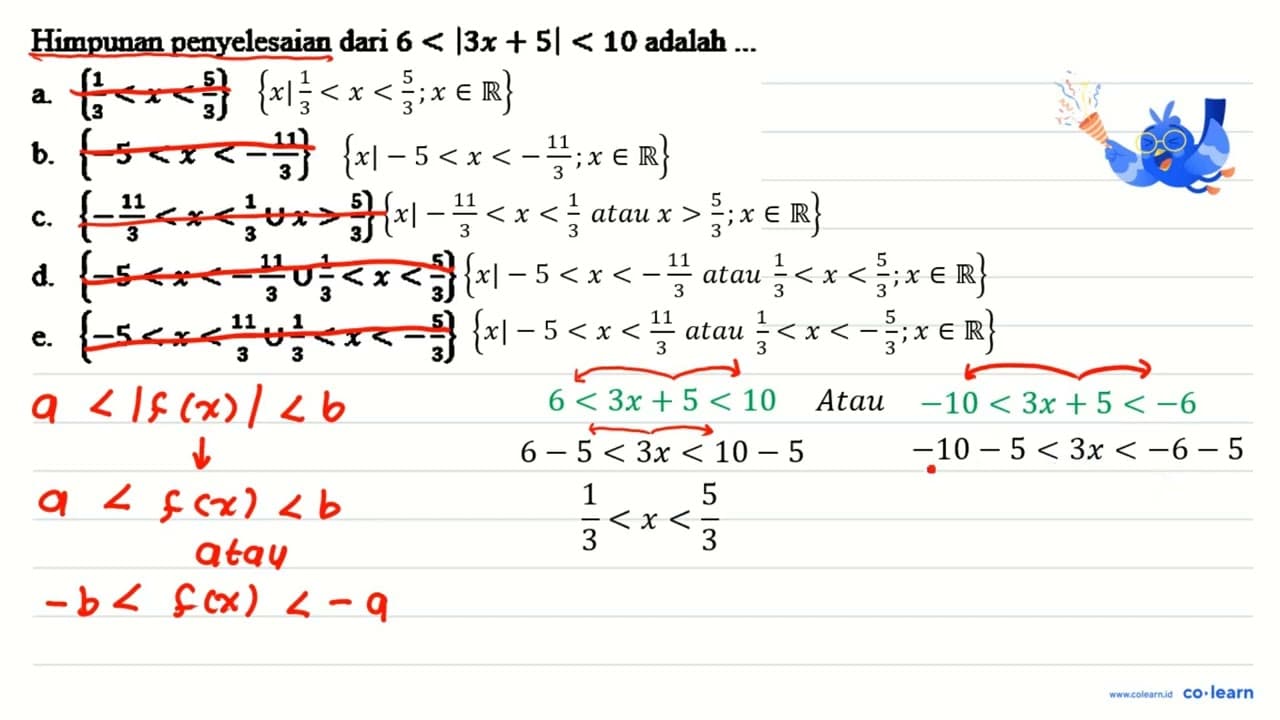 Himpunan penyelesaian dari 6 < |3x + 5| < 10 adalah ...
a. {1/3 < x < 5/3} {x| 1/3 < x < 5/3; x ∈ ℝ}
b. {−5 < x < −11/3} {x| − 5 < x < −11/3; x ∈ ℝ}
c. {−11/3 < x < 1/3 ∪ x > 5/3} {x| − 11/3 < x < 1/3 atau x > 5/3; x ∈ ℝ}
d. {−5 < x < −11/3 ∪ 1/3 < x < 5/3} {x| − 5 < x < −11/3 atau 1/3 < x < 5/3; x ∈ ℝ}
e. {−5 < x < 11/3 ∪ 1/3 < x < −5/3} {x| − 5 < x < 11/3 atau 1/3 < x < −5/3; x ∈ ℝ}
a < |f(x)| < b
↓
a < f(x) < b
atau
−b < f(x) < −a
6 < 3x + 5 < 10 Atau −10 < 3x + 5 < −6
6 − 5 < 3x < 10 − 5 −10 − 5 < 3x < −6 − 5
1/3 < x < 5/3
www.colearn.id co·learn